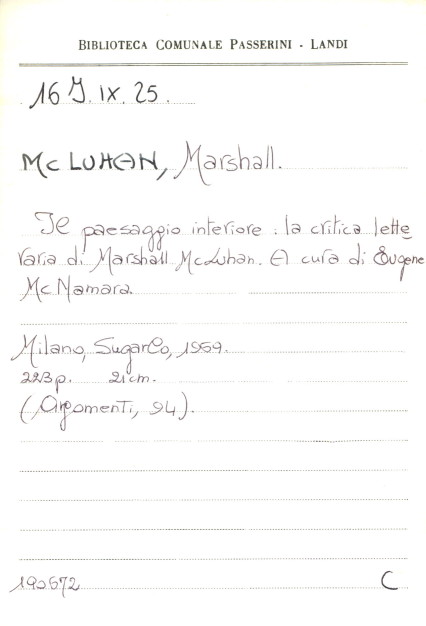 BIBLIOTECA COMUNALE PASSERINI - LANDI
16 J. IX. 25.
Mc LUHAN, Marshall.
Il paesaggio interiore : la critica lette
raria di Marshall McLuhan. A cura di Eugene
McNamara.
Milano, SugarCo, 1969.
223 p. 21 cm.
(Argomenti, 94).
190672 C